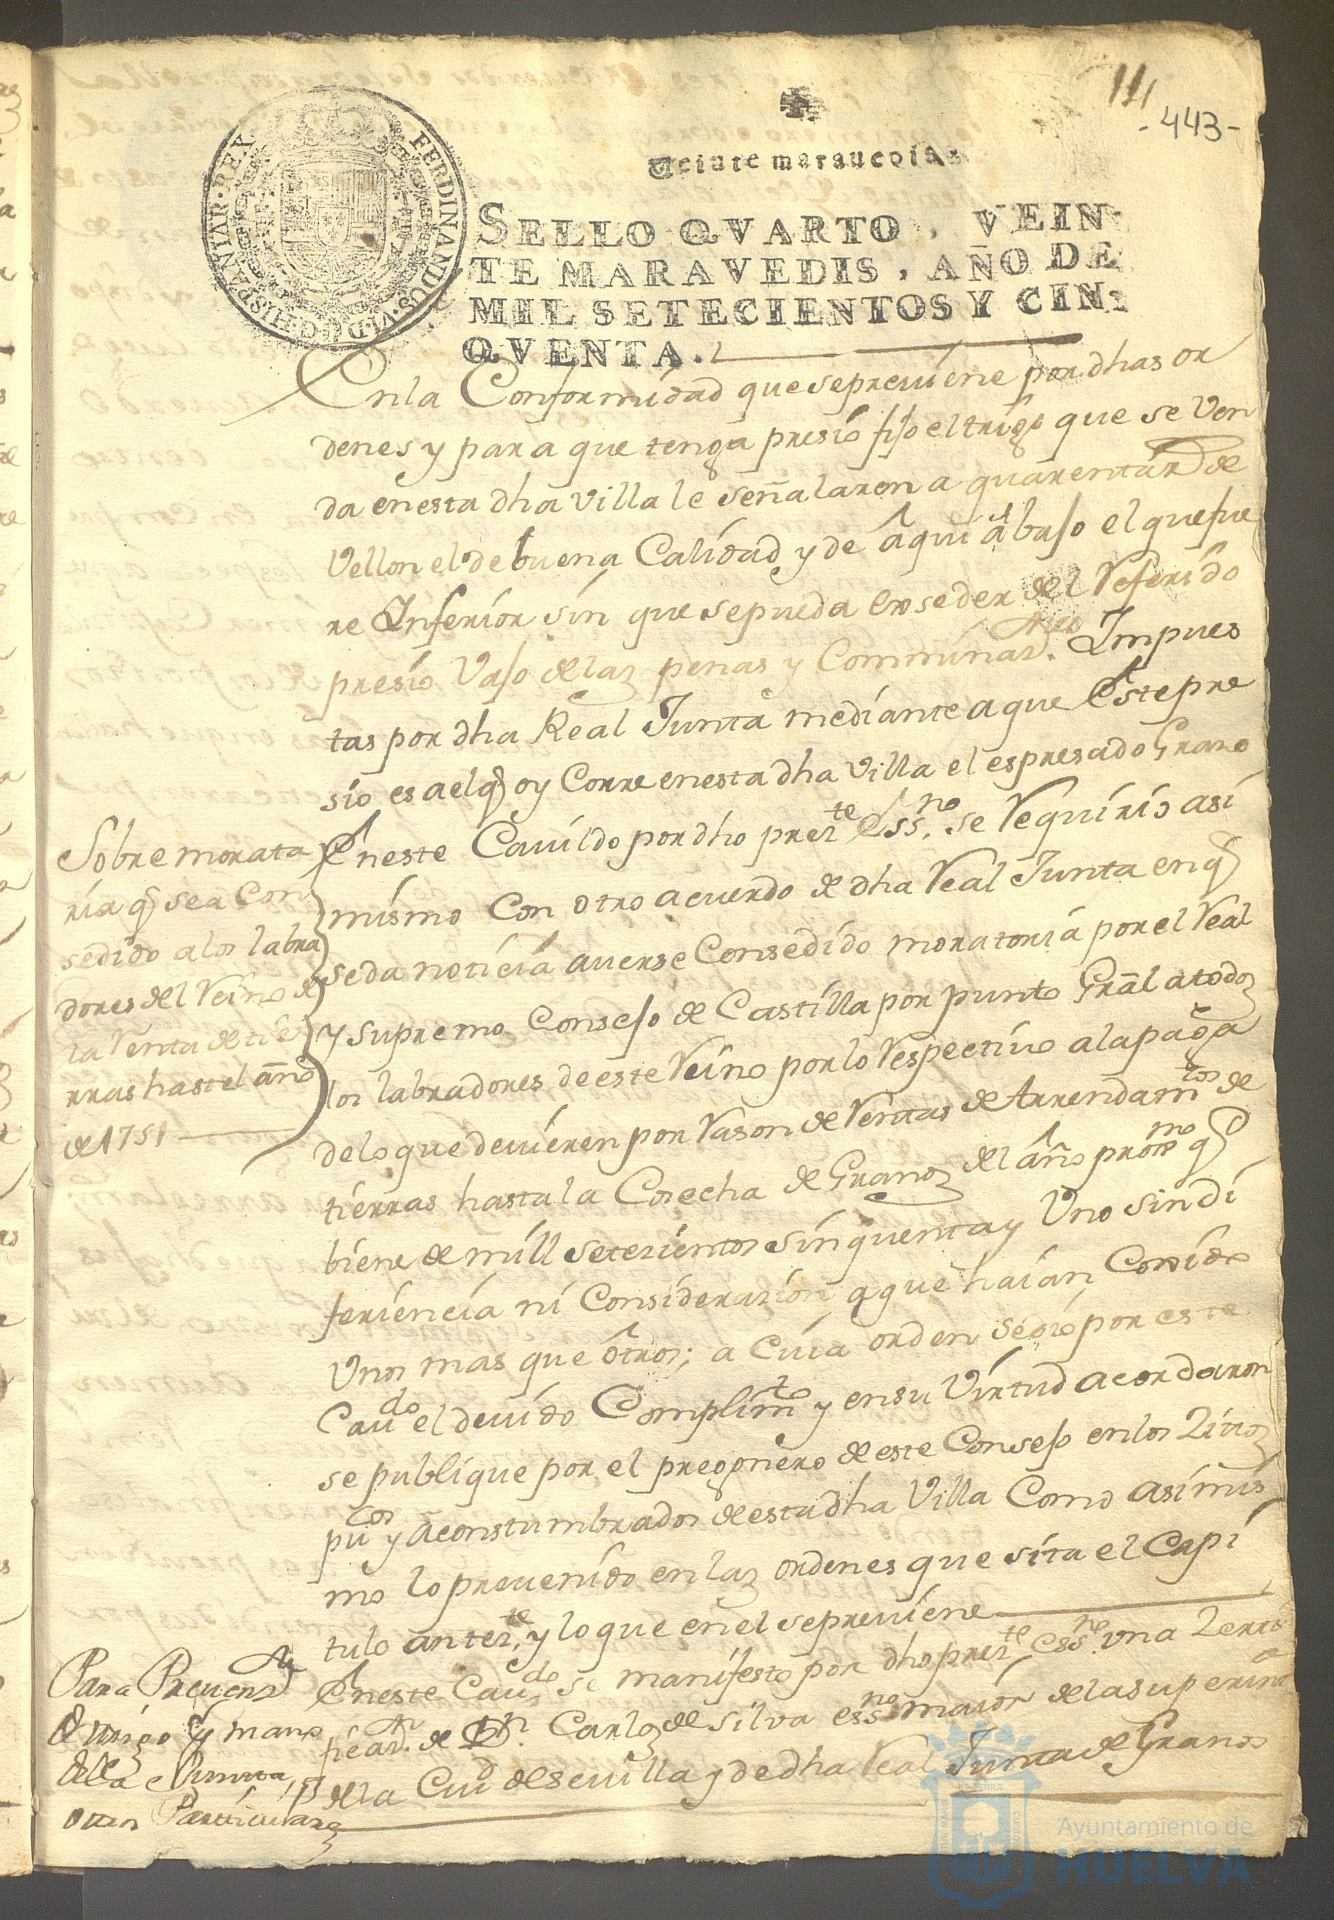 111
-443-
Veinte marauedis
SELLO QVARTO, VEIN-
TE MARAVEDIS, AÑO DE
MIL SETECIENTOS Y CIN-
QVENTA.
FERDINANDUS·VI·D·G·HISPANIAR·REX·
Enla Conformidad que sepreviene por dhas or
denes y para que tenga presio fijo el trigo que se ven
da enesta dha villa le señalaron a quarenta rs de
Vellon el de buena Calidad y de aqui abajo el que fue
re Inferior sin que sepueda exseder del Referido
presio Vajo de las penas y Comminaz.nes Impues
tas por dha Real Junta mediante a que Este pre
sio es a el q oy Corre enesta dha villa el espresado Grano
Sobre morata
ria q sea Con
sedido alos labra
dores del Reino de
la Venta de tie
rras hastel año
de 1751
Eneste Cavildo por dho prez.te Ess.no se Requirio asi
mismo Con otro acuerdo de dha Real Junta enq
seda noticia averse Consedido moratoria por el Real
y supremo Consejo de Castilla por punto Grãl a todos
los labradores de este Reino por lo Respectivo a la paga
de lo que devieren por Rason de Rentas de Arrendam.tos de
tierras hasta la Cosecha de Granos del año prox.mo q
biene de mill setezientos sinquenta y Uno sin di
feriencia ni Considerazion a que haian Cojido
Unos mas que otros; a Cuia orden se dio por este
Cav.do el devido Complim.to y ensu Virtud acordaron
se publique por el pregonero de este Consejo enlos Zitios
pu.cos y aconstumbrados de esta dha Villa Como asimis
mo lo prevenido en las ordenes que sita el Capi
tulo anter.te, y lo que en el sepreviene
Para Prevenz.n
de trigo y mano
de la Junta, y
otras Particulares
Eneste Cav.do se manifesto por dho prez.te ess.no una Zerti
ficaz.n de Dn. Carlos de Silva ess.no maior de la superint.a
de la Ciu.d de sevilla y de dha Real Junta de Granos
Ayuntamiento de
HUELVA